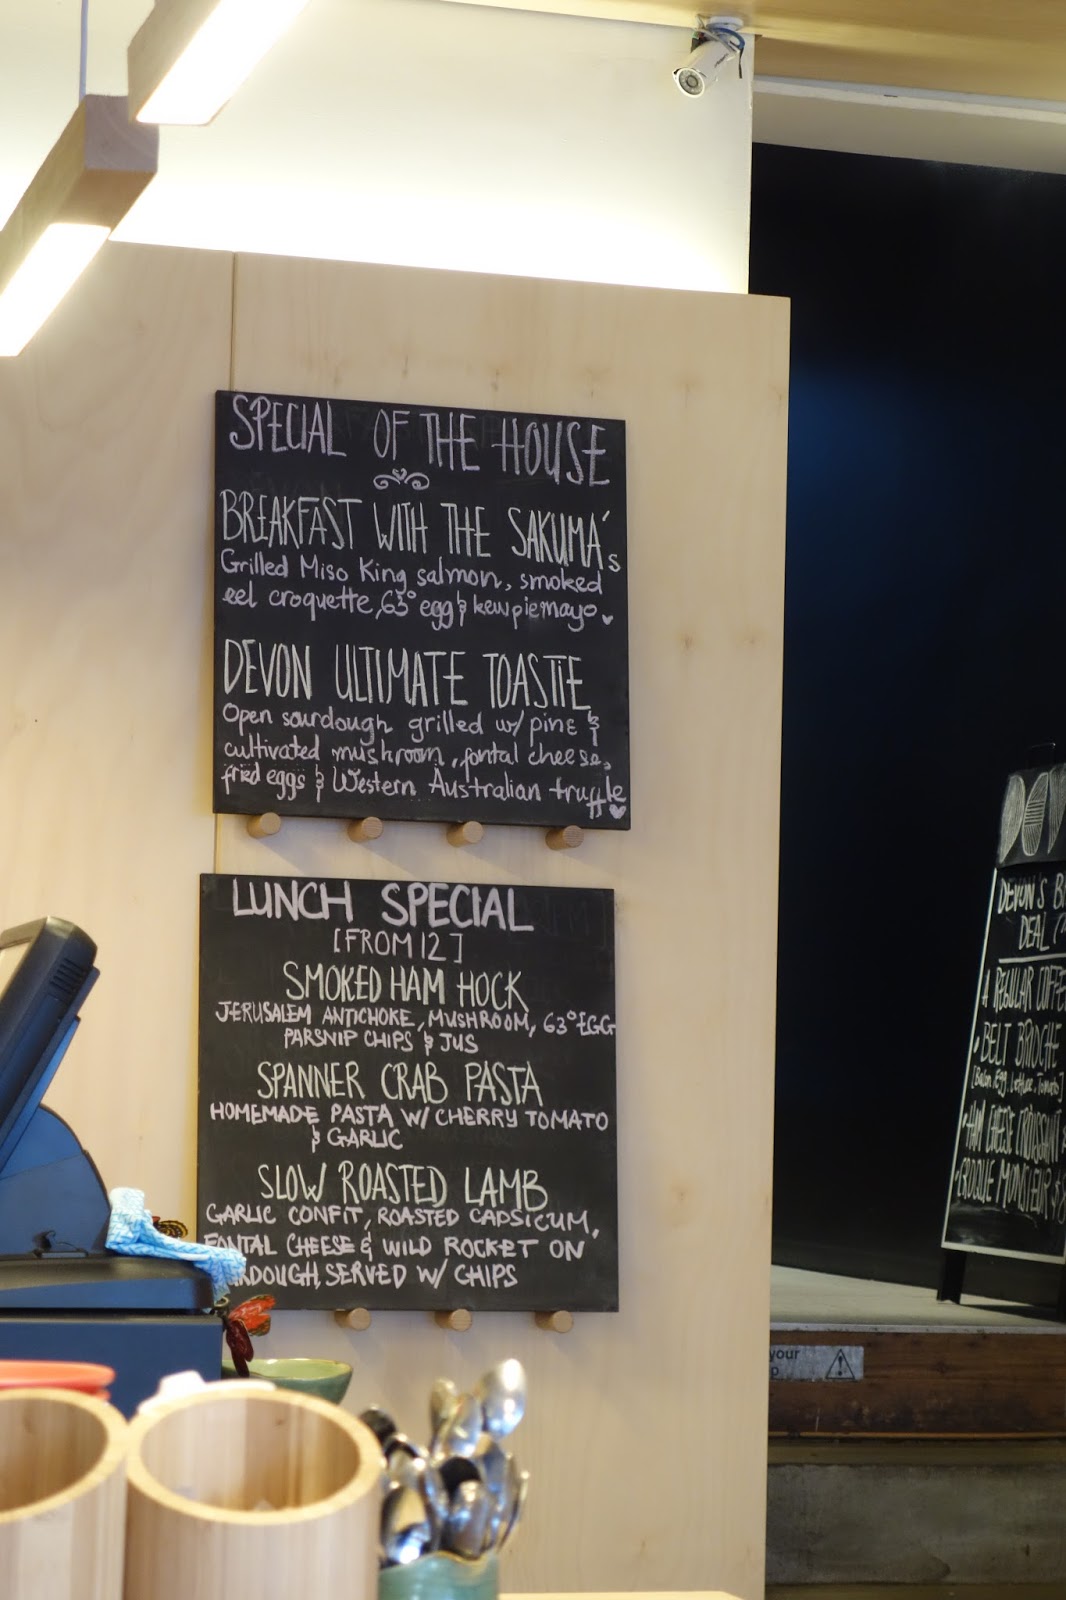 SPECIAL OF THE HOUSE
BREAKFAST WITH THE SAKUMA's
Grilled Miso King salmon, smoked
eel croquette, 63° egg & kewpie mayo
DEVON ULTIMATE TOASTIE
Open sourdough grilled w/ pine &
cultivated mushroom, fontal cheese,
fried eggs & Western Australian truffle
LUNCH SPECIAL
[FROM 12]
SMOKED HAM HOCK
JERUSALEM ANTICHOKE, MUSHROOM, 63° EGG
PARSNIP CHIPS & JUS
SPANNER CRAB PASTA
HOMEMADE PASTA W/ CHERRY TOMATO
& GARLIC
SLOW ROASTED LAMB
GARLIC CONFIT, ROASTED CAPSICUM,
FONTAL CHEESE & WILD ROCKET ON
RDOUGH, SERVED W/ CHIPS
DEVON'S B
DEAL
A REGULAR COFFE
• BELT BRIOCHE
[Bacon, Egg, Lettuce, Tomato]
• HAM CHEESE CROISSANT
• COOKIE MONSTER $
your
p